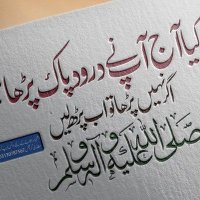 کیا آج آپ نے درود پاک پڑھا؟
اگر نہیں پڑھا تو اب پڑھ لیں
صلی اللہ علیہ وآلہ وسلم